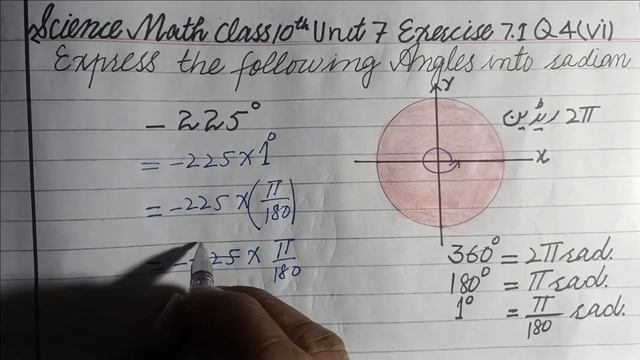 Science Math Class 10th Unit 7 Exercise 7.1 Q4(vi)
Express the following Angles into radian
-225°
= -225 × 1°
= -225 × (π/180)
= -225 × π/180
Y
X
2π ریڈین
360° = 2π rad.
180° = π rad.
1° = π/180 rad.